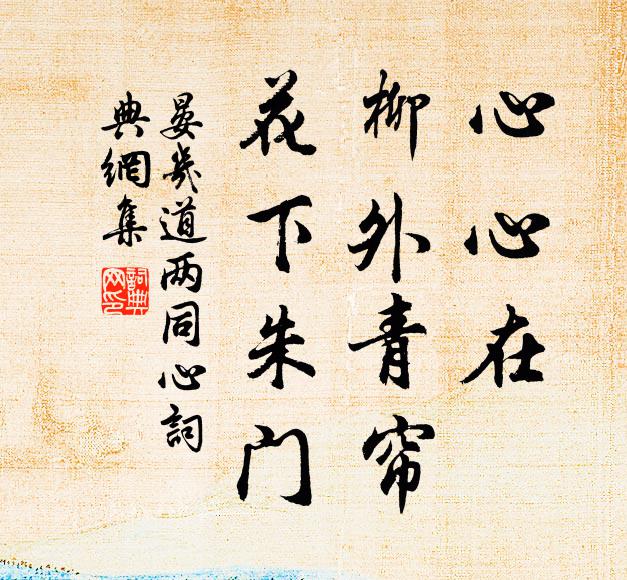 心心在
柳外青帘
花下朱门
晏幾道两同心詞
典網集
詞典
网印